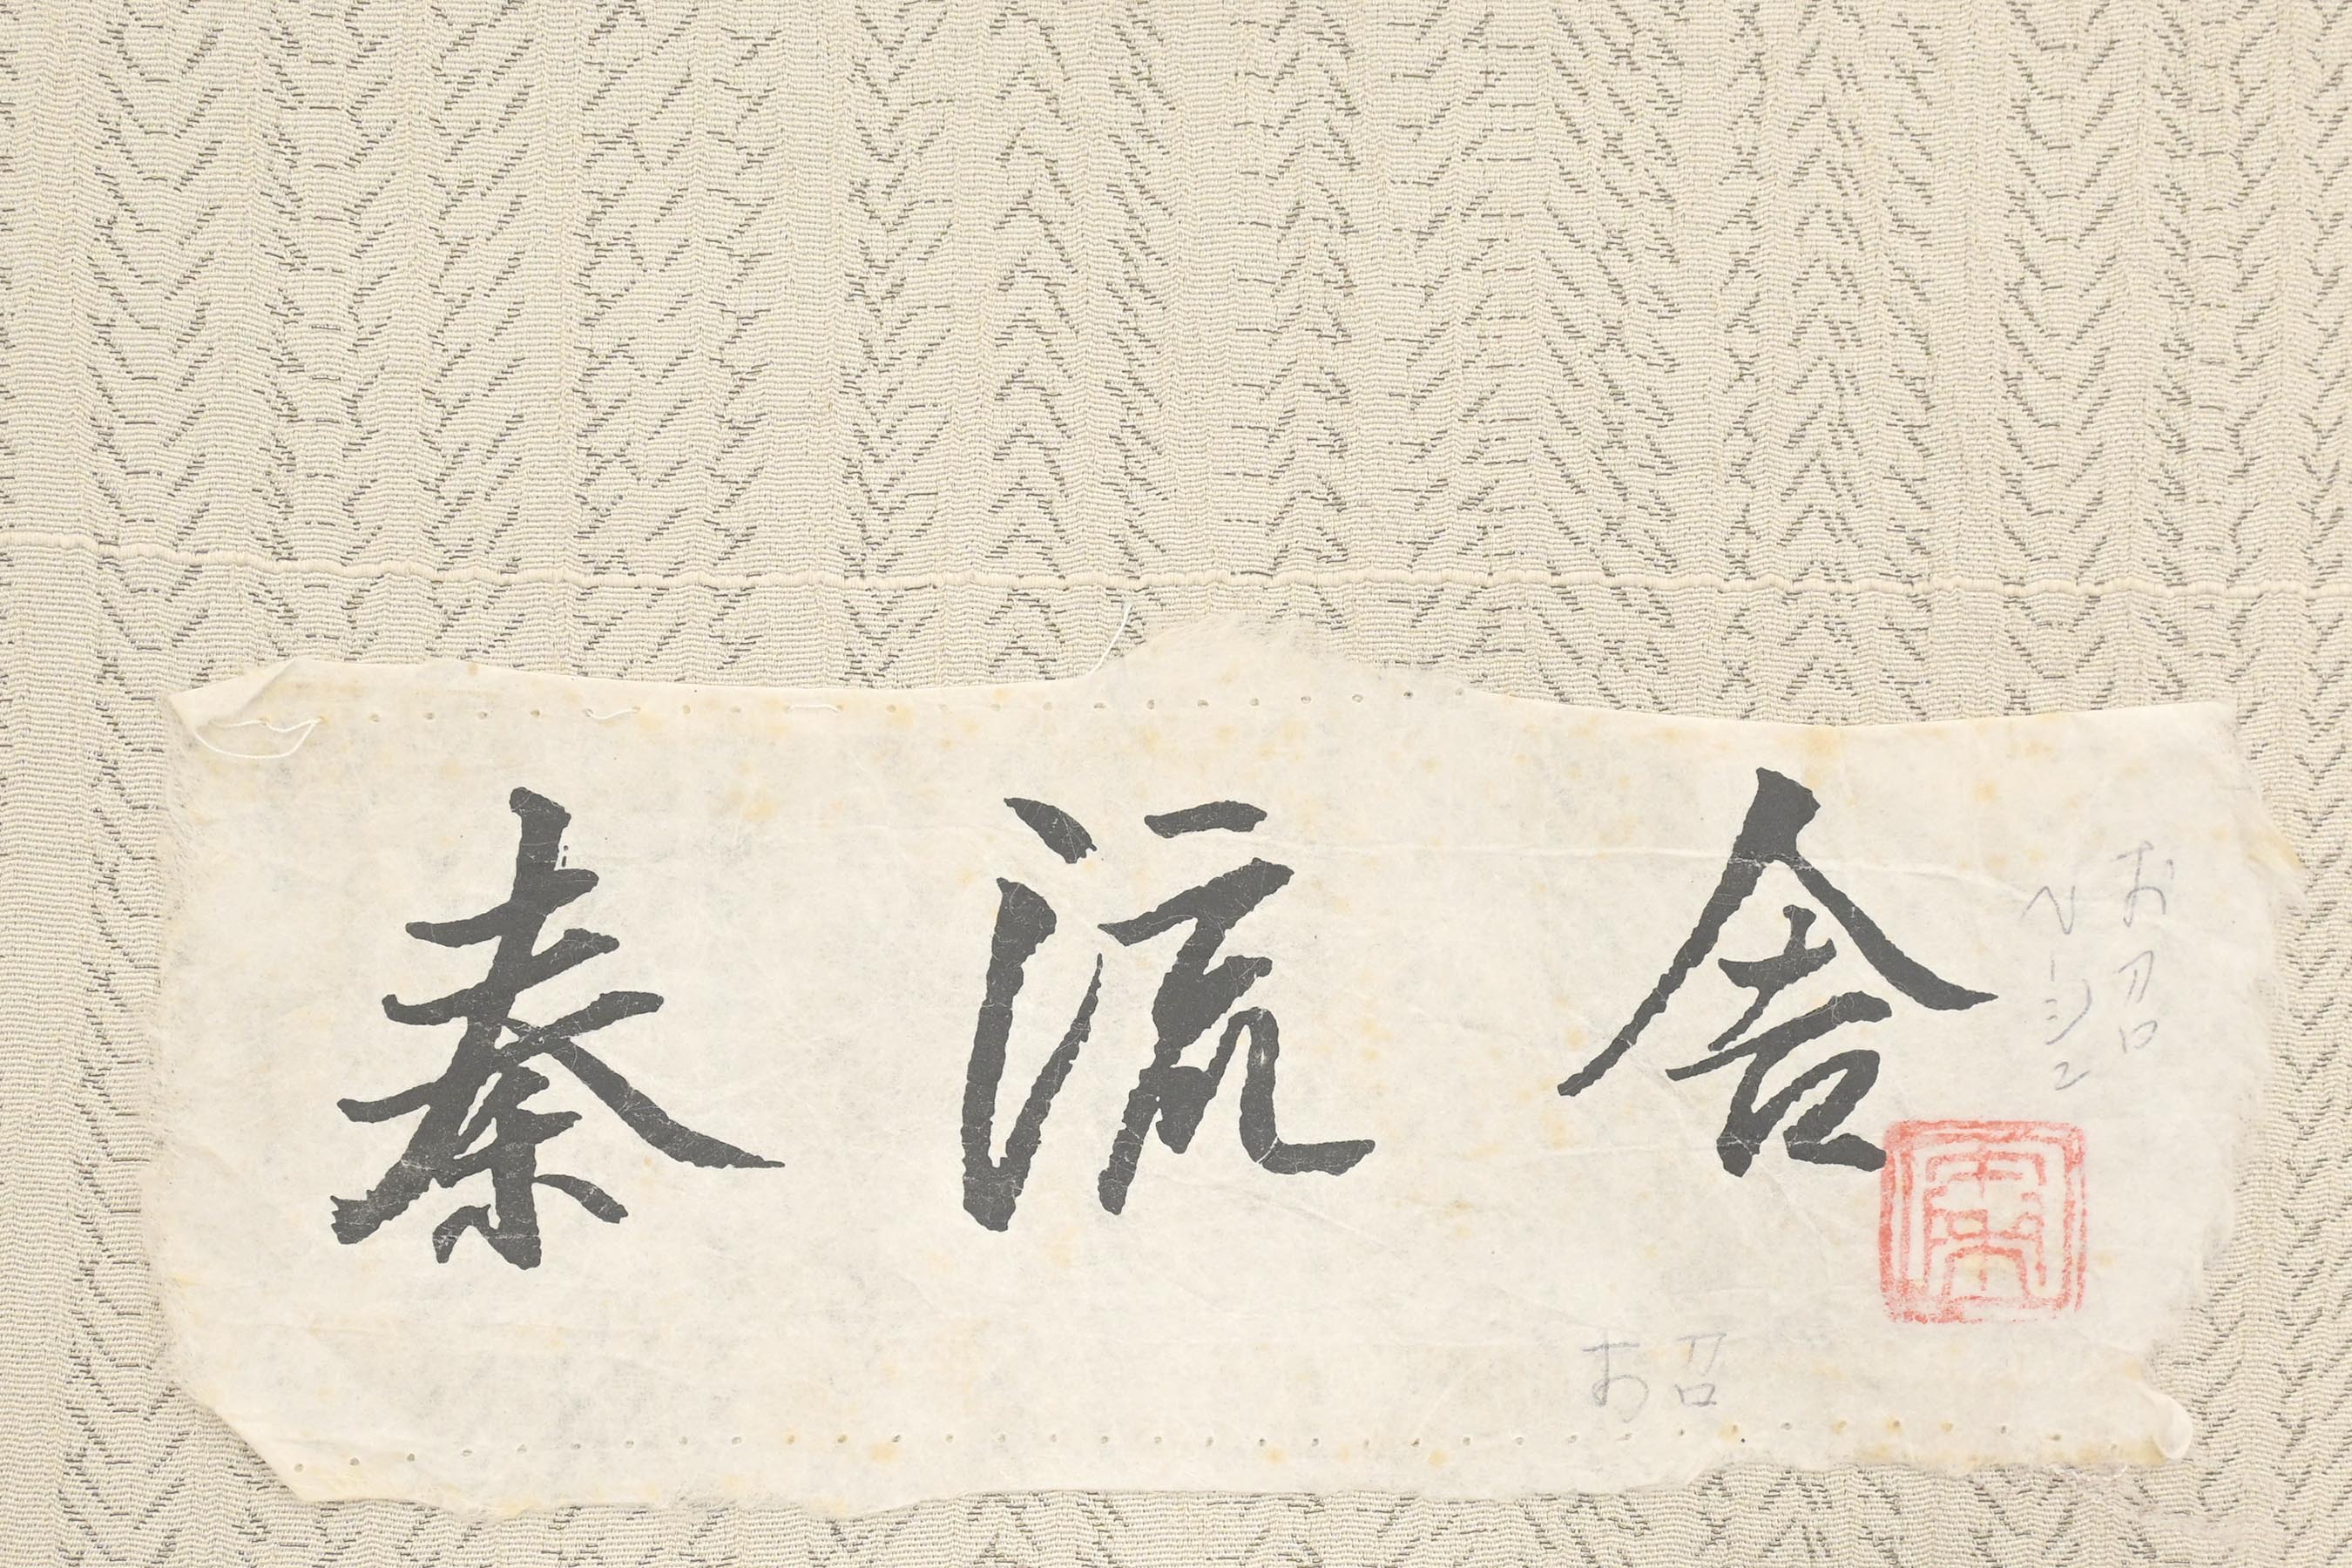 秦流舎
お召
ベージュ
お召